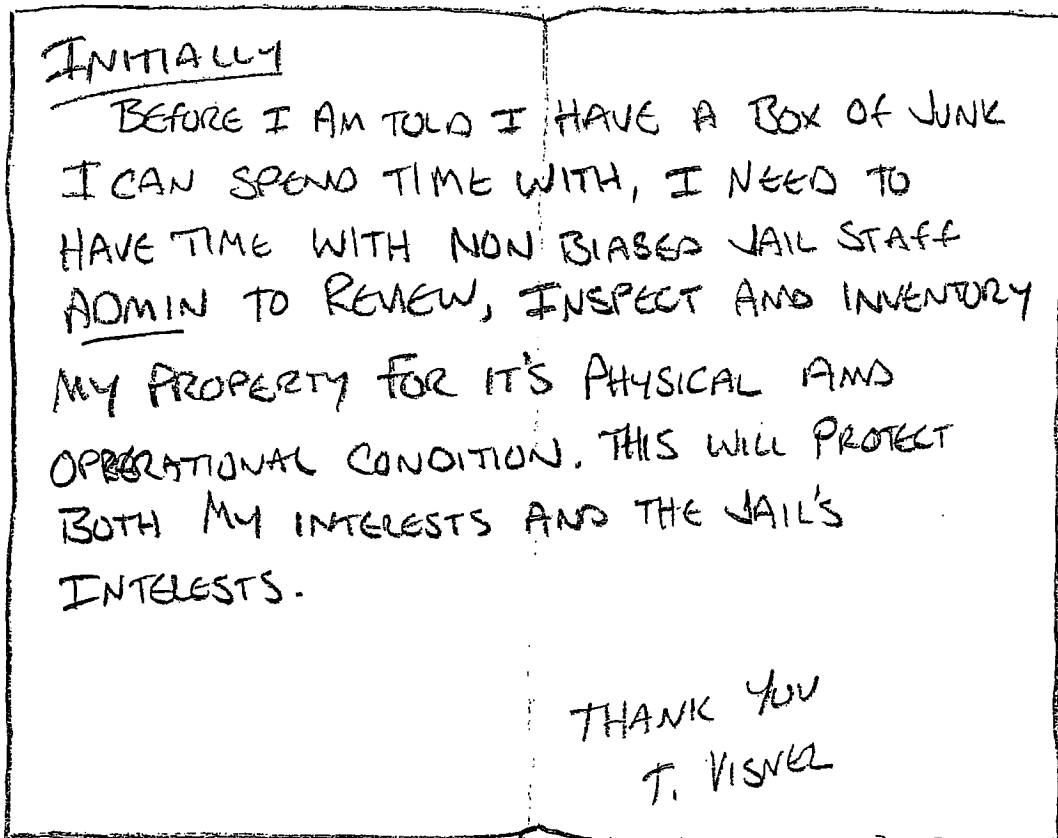 INITIALLY
BEFORE I AM TOLD I HAVE A BOX OF JUNK
I CAN SPEND TIME WITH, I NEED TO
HAVE TIME WITH NON BIASED JAIL STAFF
ADMIN TO REVIEW, INSPECT AND INVENTORY
MY PROPERTY FOR IT'S PHYSICAL AND
OPERATIONAL CONDITION. THIS WILL PROTECT
BOTH MY INTERESTS AND THE JAIL'S
INTERESTS.
THANK YOU
T. VISNER